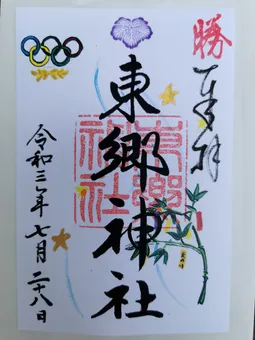 勝
奉拝
東郷神社
東郷神社
令和三年七月二十八日